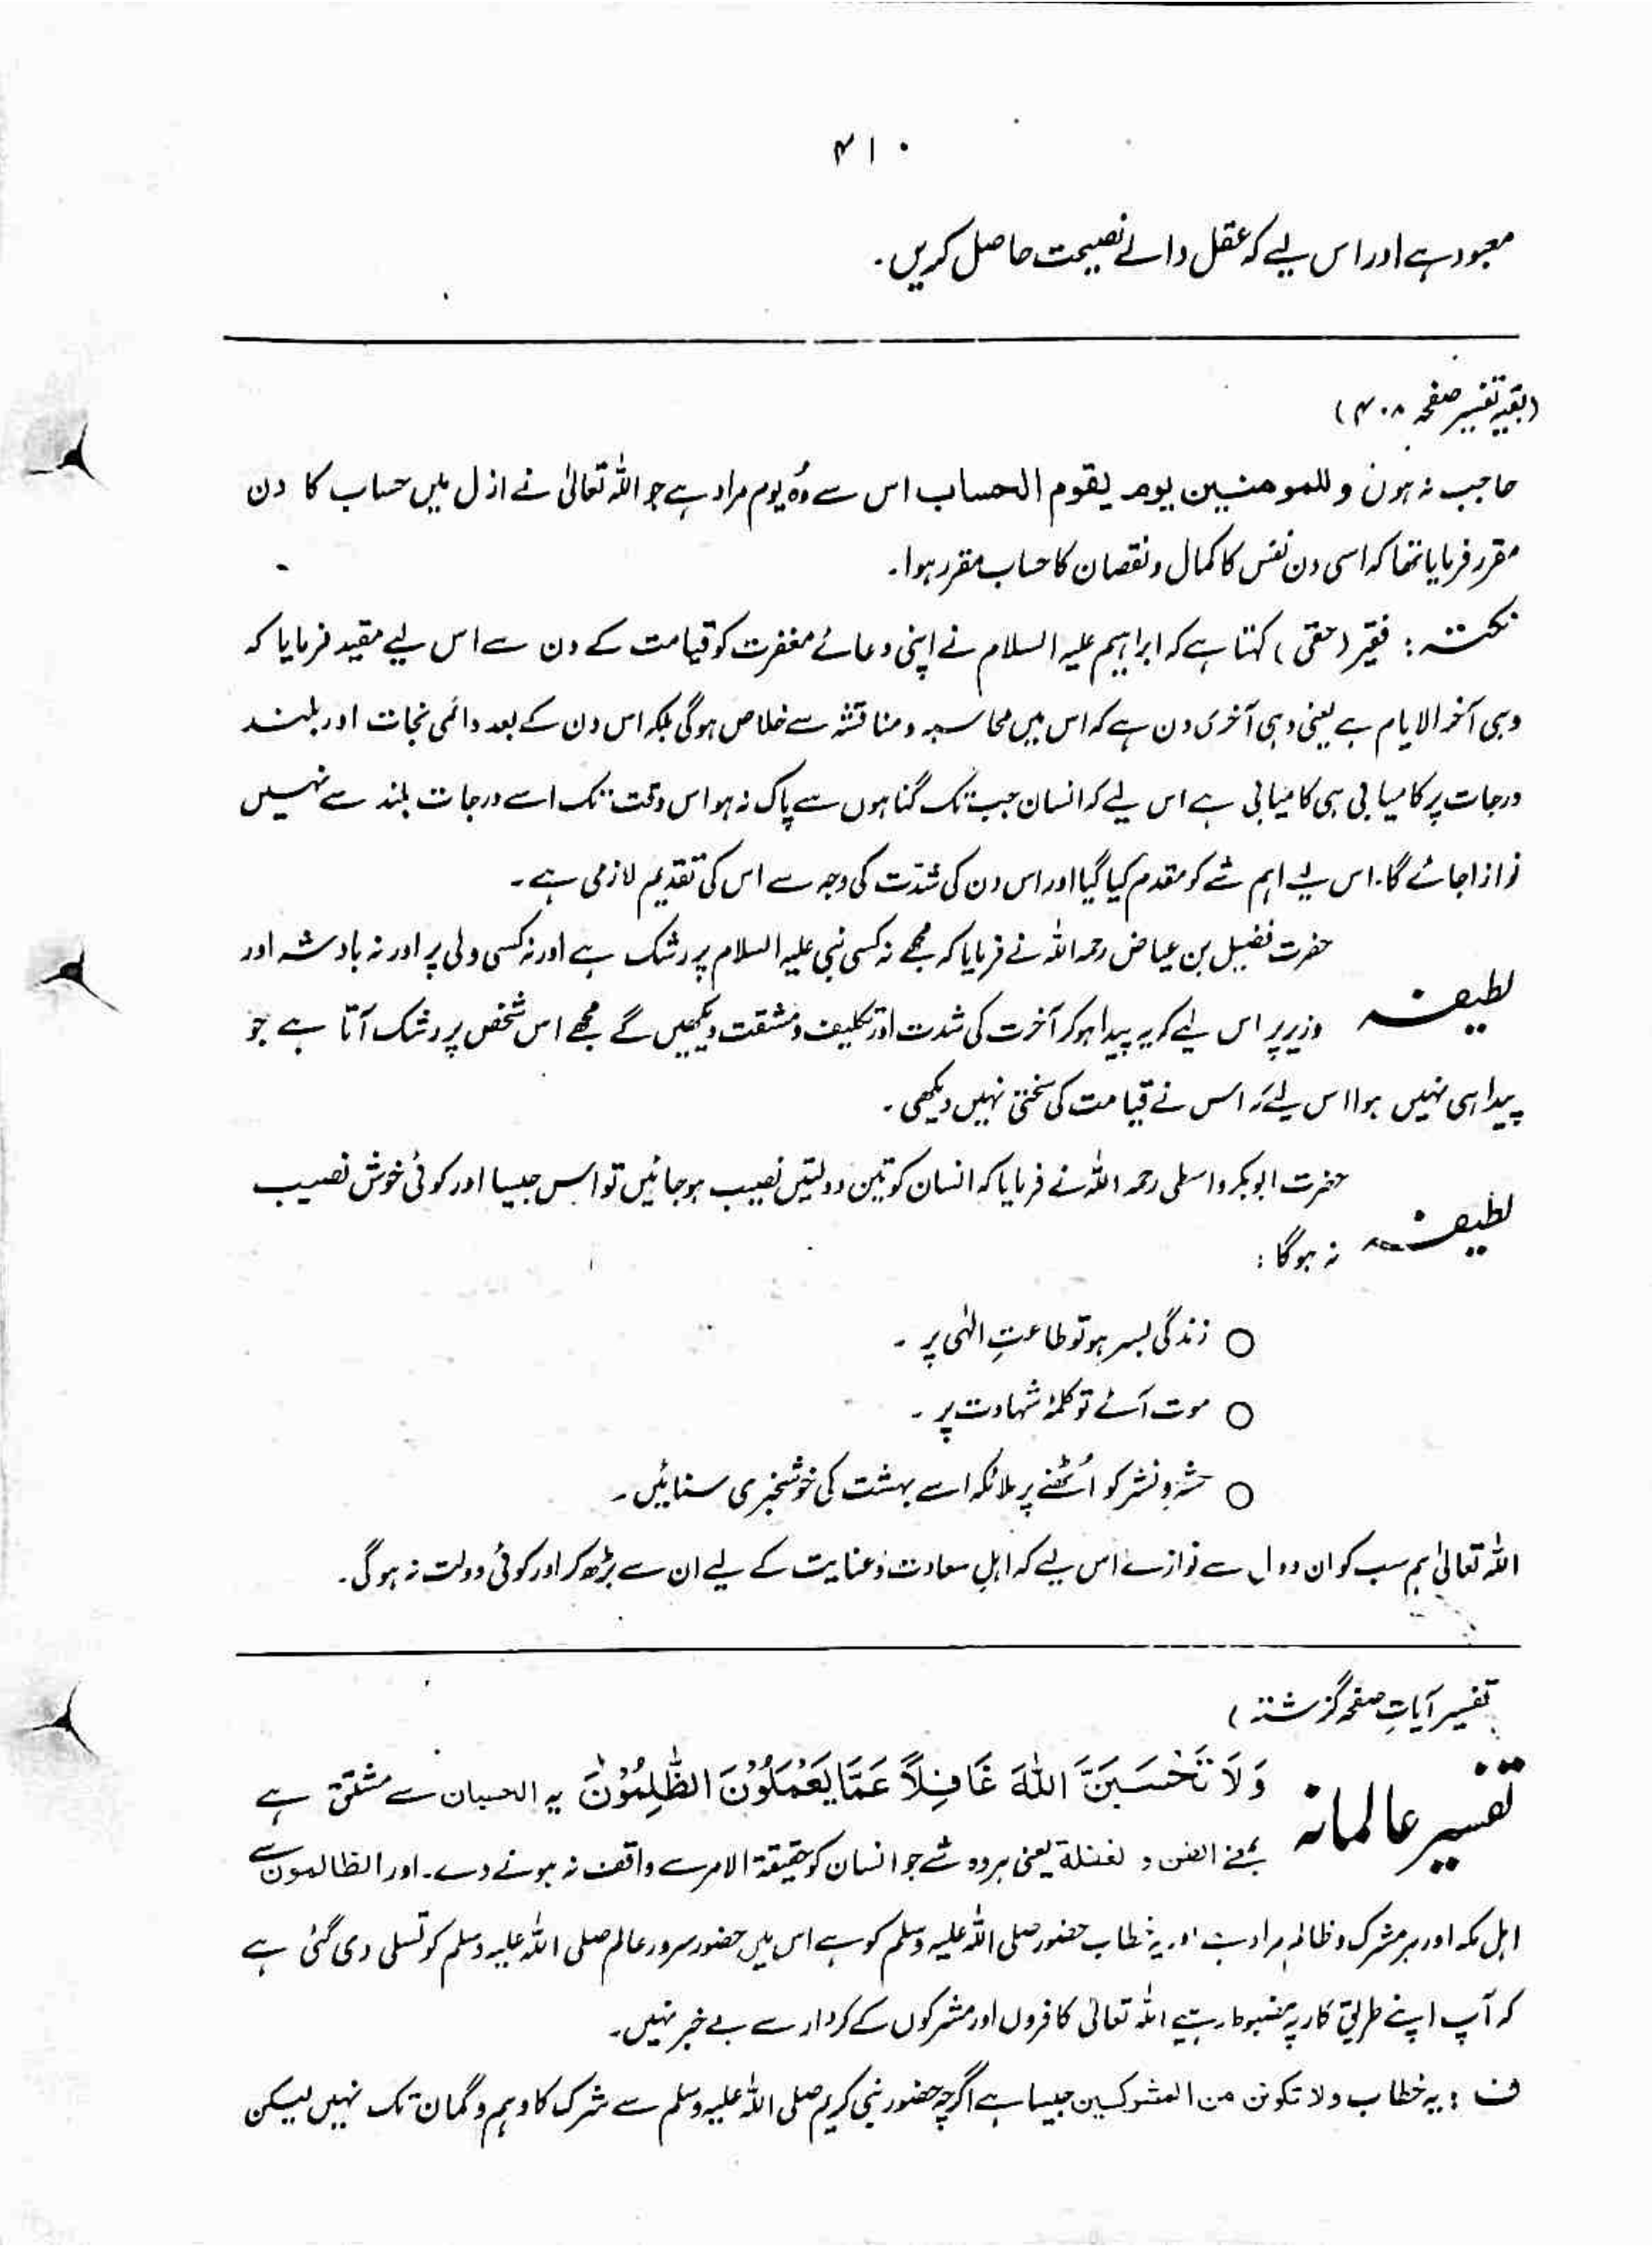 ۴۱۰
معبود ہے اور اس لیے کہ عقل والے نصیحت حاصل کریں۔
(بقیہ تفسیر صفحہ ۴۰۸)
حاجب نہ ہوں وللمومنین یوم یقوم الحساب اس سے وُہ یوم مراد ہے جو اللہ تعالیٰ نے ازل میں حساب کا دن
مقرر فرمایا تھا کہ اسی دن نفس کا کمال و نقصان کا حساب مقرر ہوا۔
نکتہ : فقیر (حقی) کہتا ہے کہ ابراہیم علیہ السلام نے اپنی دعائے مغفرت کو قیامت کے دن سے اس لیے مقید فرمایا کہ
وہی آخر الایام ہے یعنی وہی آخری دن ہے کہ اس میں محاسبہ و مناقشہ سے خلاص ہوگی بلکہ اس دن کے بعد دائمی نجات اور بلند
درجات پر کامیابی ہی کامیابی ہے اس لیے کہ انسان جب تک گناہوں سے پاک نہ ہو اس وقت تک اسے درجات بلند سے نہیں
نوازا جائے گا۔ اس لیے اہم شے کو مقدم کیا گیا اور اس دن کی شدّت کی وجہ سے اس کی تقدیم لازمی ہے۔
لطیفہ حضرت فضیل بن عیاض رحمہ اللہ نے فرمایا کہ مجھے نہ کسی نبی علیہ السلام پر رشک ہے اور نہ کسی ولی پر اور نہ بادشہ اور
وزیر پر اس لیے کہ یہ پیدا ہو کر آخرت کی شدت اور تکلیف و مشقت دیکھیں گے مجھے اس شخص پر رشک آتا ہے جو
پیدا ہی نہیں ہوا اس لیے کہ اس نے قیامت کی سختی نہیں دیکھی۔
لطیفہ حضرت ابوبکر واسطی رحمہ اللہ نے فرمایا کہ انسان کو تین دولتیں نصیب ہوجائیں تو اس جیسا اور کوئی خوش نصیب
نہ ہوگا :
○ زندگی بسر ہو تو طاعتِ الٰہی پر ۔
○ موت آئے تو کلمۂ شہادت پر ۔
○ حشر و نشر کو اُٹھنے پر ملائکہ اسے بہشت کی خوشخبری سنائیں۔
اللہ تعالیٰ ہم سب کو ان دول سے نوازے اس لیے کہ اہل سعادت و عنایت کے لیے ان سے بڑھ کر اور کوئی دولت نہ ہوگی۔
تفسیر آیاتِ صفحہ گزشتہ )
تفسیر عالمانہ وَلَا تَحْسَبَنَّ اللّٰهَ غَافِلًا عَمَّا يَعْمَلُوْنَ الظّٰلِمُوْنَ یہ الحسبان سے مشتق ہے
بمعنے الظن و لغفلة یعنی ہر وہ شے جو انسان کو حقیقۃ الامر سے واقف نہ ہونے دے۔ اور الظالمون سے
اہل مکہ اور ہر مشرک و ظالم مراد ہے اور یہ خطاب حضور صلی اللہ علیہ وسلم کو ہے اس میں حضور سرور عالم صلی اللہ علیہ وسلم کو تسلی دی گئی ہے
کہ آپ اپنے طریق کار پر مضبوط رہیے اللہ تعالیٰ کافروں اور مشرکوں کے کردار سے بے خبر نہیں۔
ف : یہ خطاب ولا تکونن من المشرکین جیسا ہے اگرچہ حضور نبی کریم صلی اللہ علیہ وسلم سے شرک کا وہم و گمان تک نہیں لیکن